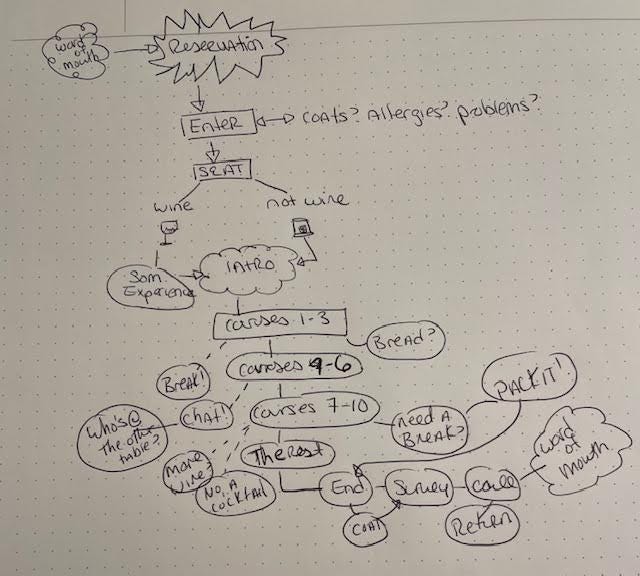 word
of
mouth
Reservation
Enter
Coats? Allergies? problems?
SEAT
wine
not wine
INTRO
Som.
Experience
courses 1-3
Bread?
courses 4-6
Break!
PACK IT!
chat!
courses 7-10
Who's @
The other
table?
NEED A
BREAK?
word
of
mouth
More
wine?
The Rest
No, A
cocktail
End
Survey
Call
COAT
Return